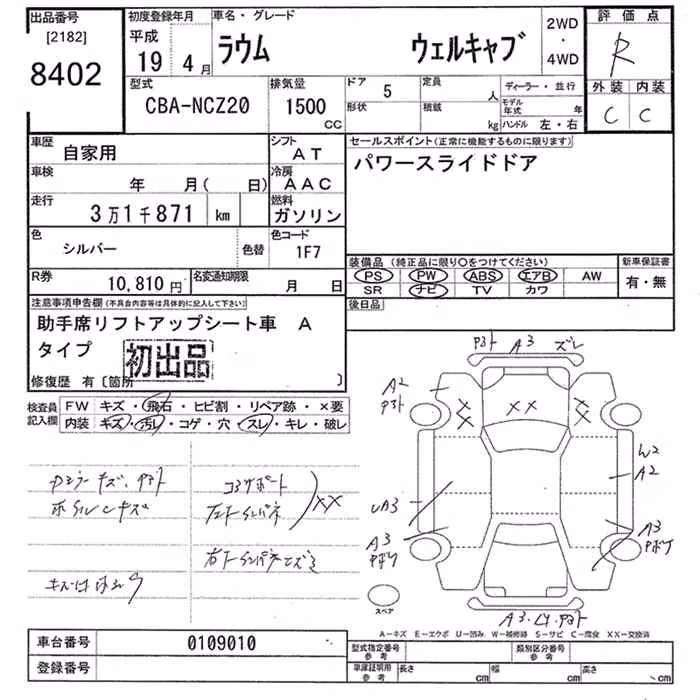 出品番号
[2182]
8402
初度登録年月
平成
19 4月
車名・グレード
ラウム ウェルキャブ
2WD
・
4WD
評価点
R
外装 内装
C C
型式
CBA-NCZ20
排気量
1500
CC
ドア 5
定員 人
形状
積載 kg
ディーラー・並行
モデル年式 年
ハンドル 左・右
車歴
自家用
シフト
AT
車検
年 月( 日)
冷房
AAC
走行
3万1千871 km
燃料
ガソリン
色
シルバー
色替
色コード
1F7
R券
10,810円
名変通知期限
月 日
セールスポイント(正常に機能するものに限ります)
パワースライドドア
装備品 (純正品に限り〇をつけてください)
PS PW ABS エアB AW
SR ナビ TV カワ
新車保証書
有・無
後日品
注意事項申告欄(不具合内容等は具体的に記入して下さい)
助手席リフトアップシート車 A
タイプ
初出品
修復歴 有〔箇所 〕
検査員
記入欄
FW キズ・飛石・ヒビ割・リペア跡・×要
内装 キズ・汚レ・コゲ・穴・スレ・キレ・破レ
コアサポート
XX
A3 ズレ
A2
XX
W2
A2
UA3
A3
A3
スペア
A3
A-キズ E-エクボ U-凹み W-補修跡 S-サビ C-腐食 XX-交換済
車台番号 0109010
登録番号
型式指定番号
参考
類別区分番号
参考
車庫証明用
参考
長さ cm
幅 cm
高さ cm